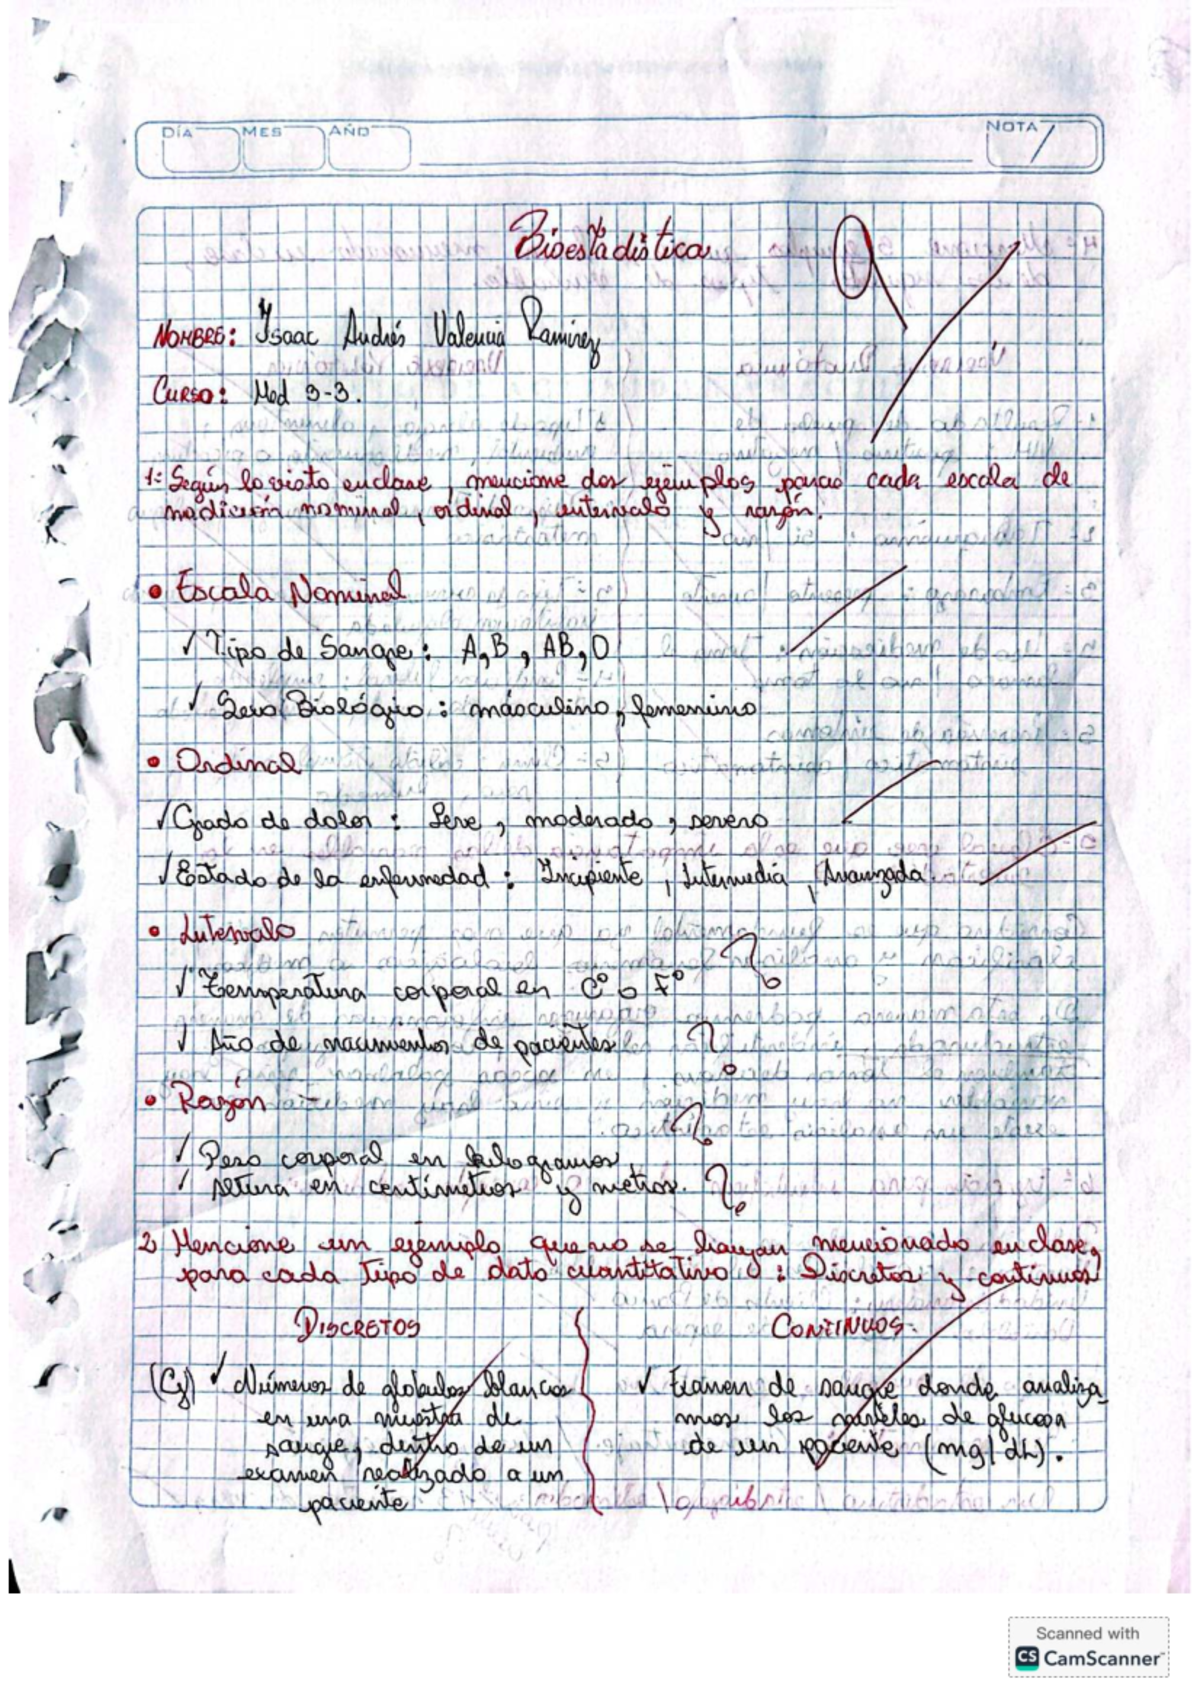 DÍA MES AÑO NOTA
Bioestadística 9
NOMBRE: Isaac Andrés Valencia Ramírez
CURSO: Med 3-3.
1: Según lo visto en clase, mencione dos ejemplos para cada escala de
medición nominal, ordinal, intervalo y razón.
• Escala Nominal
✓ Tipo de Sangre: A, B, AB, O
✓ Sexo Biológico: másculino, femenino
• Ordinal
✓ Grado de dolor: Leve, moderado, severo
✓ Estado de la enfermedad: Incipiente, Intermedia, Avanzada.
• Intervalo
✓ Temperatura corporal en C° o F° ?
✓ Año de nacimientos de pacientes ?
• Razón ?
✓ Peso corporal en kilogramos
✓ Altura en centímetros y metros. ?
2 Mencione un ejemplo que no se hayan mencionado en clase,
para cada tipo de dato cuantitativo: Discretos y continuos
DISCRETOS CONTINUOS:
✓ Números de glóbulos blancos ✓ Examen de sangre donde analiza
en una muestra de mos los niveles de glucosa
sangre, dentro de un de un paciente (mg/dL).
examen realizado a un
paciente
Scanned with
CS CamScanner